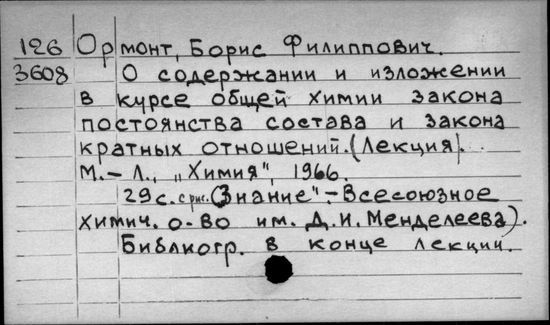 126 Ормонт, Борис Филиппович.
3608 О содержании и изложении
в курсе общей химии закона
постоянства состава и закона
кратных отношений. (Лекция).
М.-Л., „Химия", 1966.
29 с. с рис. („Знание".- Всесоюзное
химич. о-во им. Д.И. Менделеева).
Библиогр. в конце лекции.